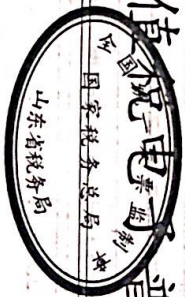 值税电子普
全国票监制章
国家税务总局
山东省税务局